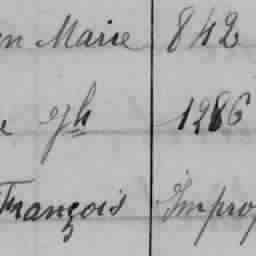 en Marie 842
e Jh 1286
François Improp